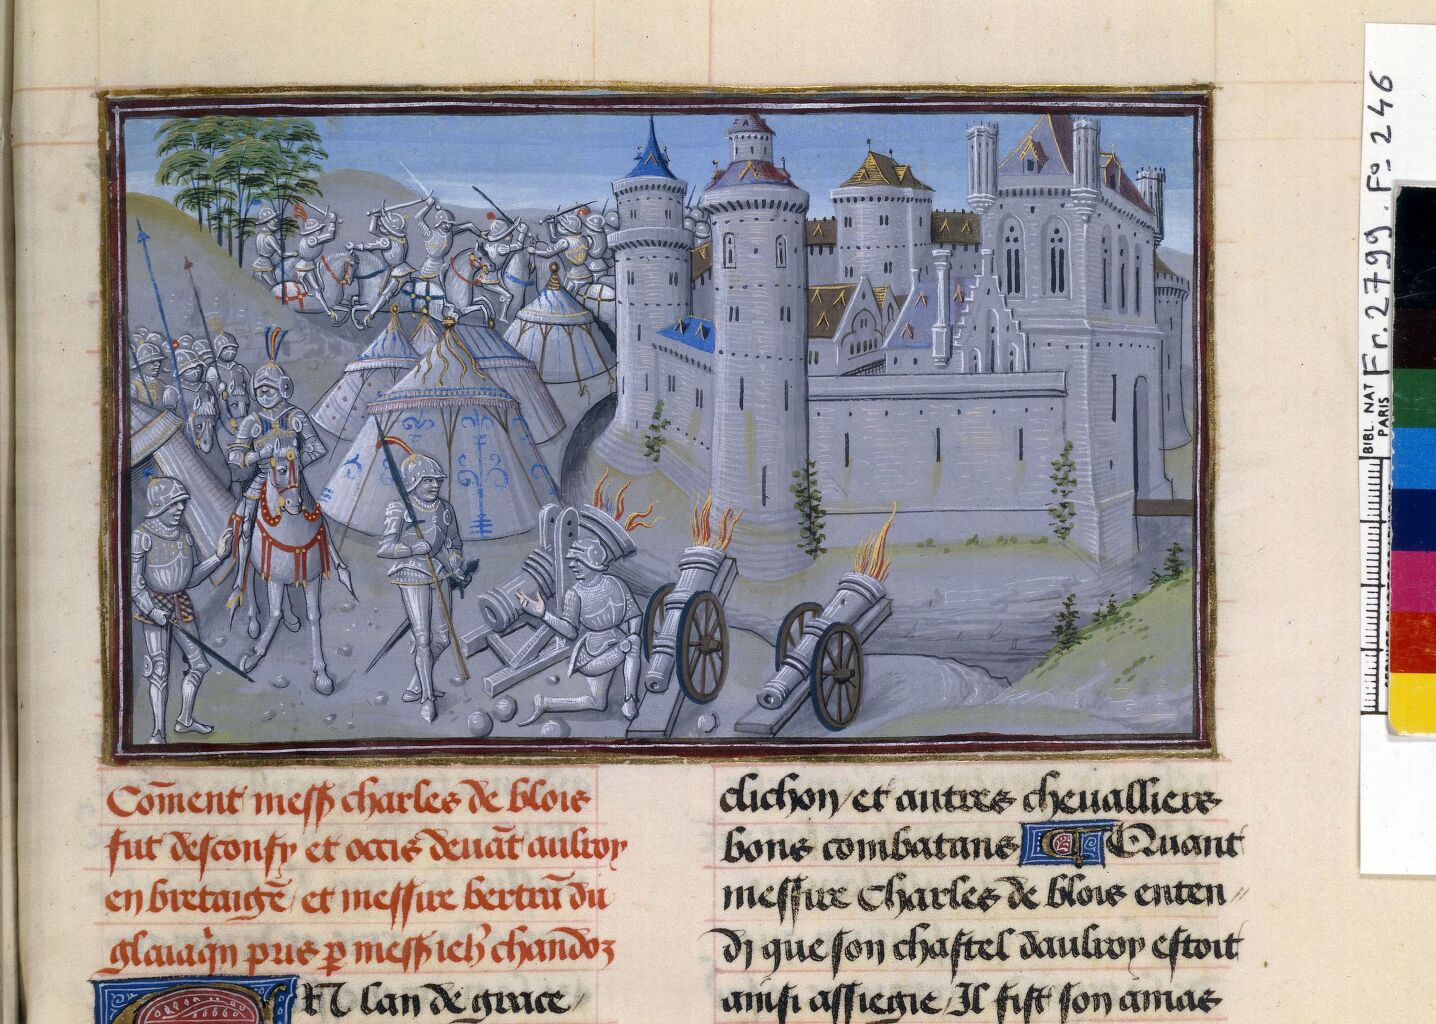 Cõment mess charles de blois
fut desconfy et occis devãt aulroy
en bretaigẽ et messire bertrã du
glaiaq̃n pris p messʳ ieħ chandoz
EN lan de grace
clichon et autres chevalliers
bons combatans Quant
messire Charles de blois enten〃
di que son chastel daulroy estoit
ainsi assiegie Il fist son amas
BIBL. NAT
PARIS
Fr. 2799. Fº 246